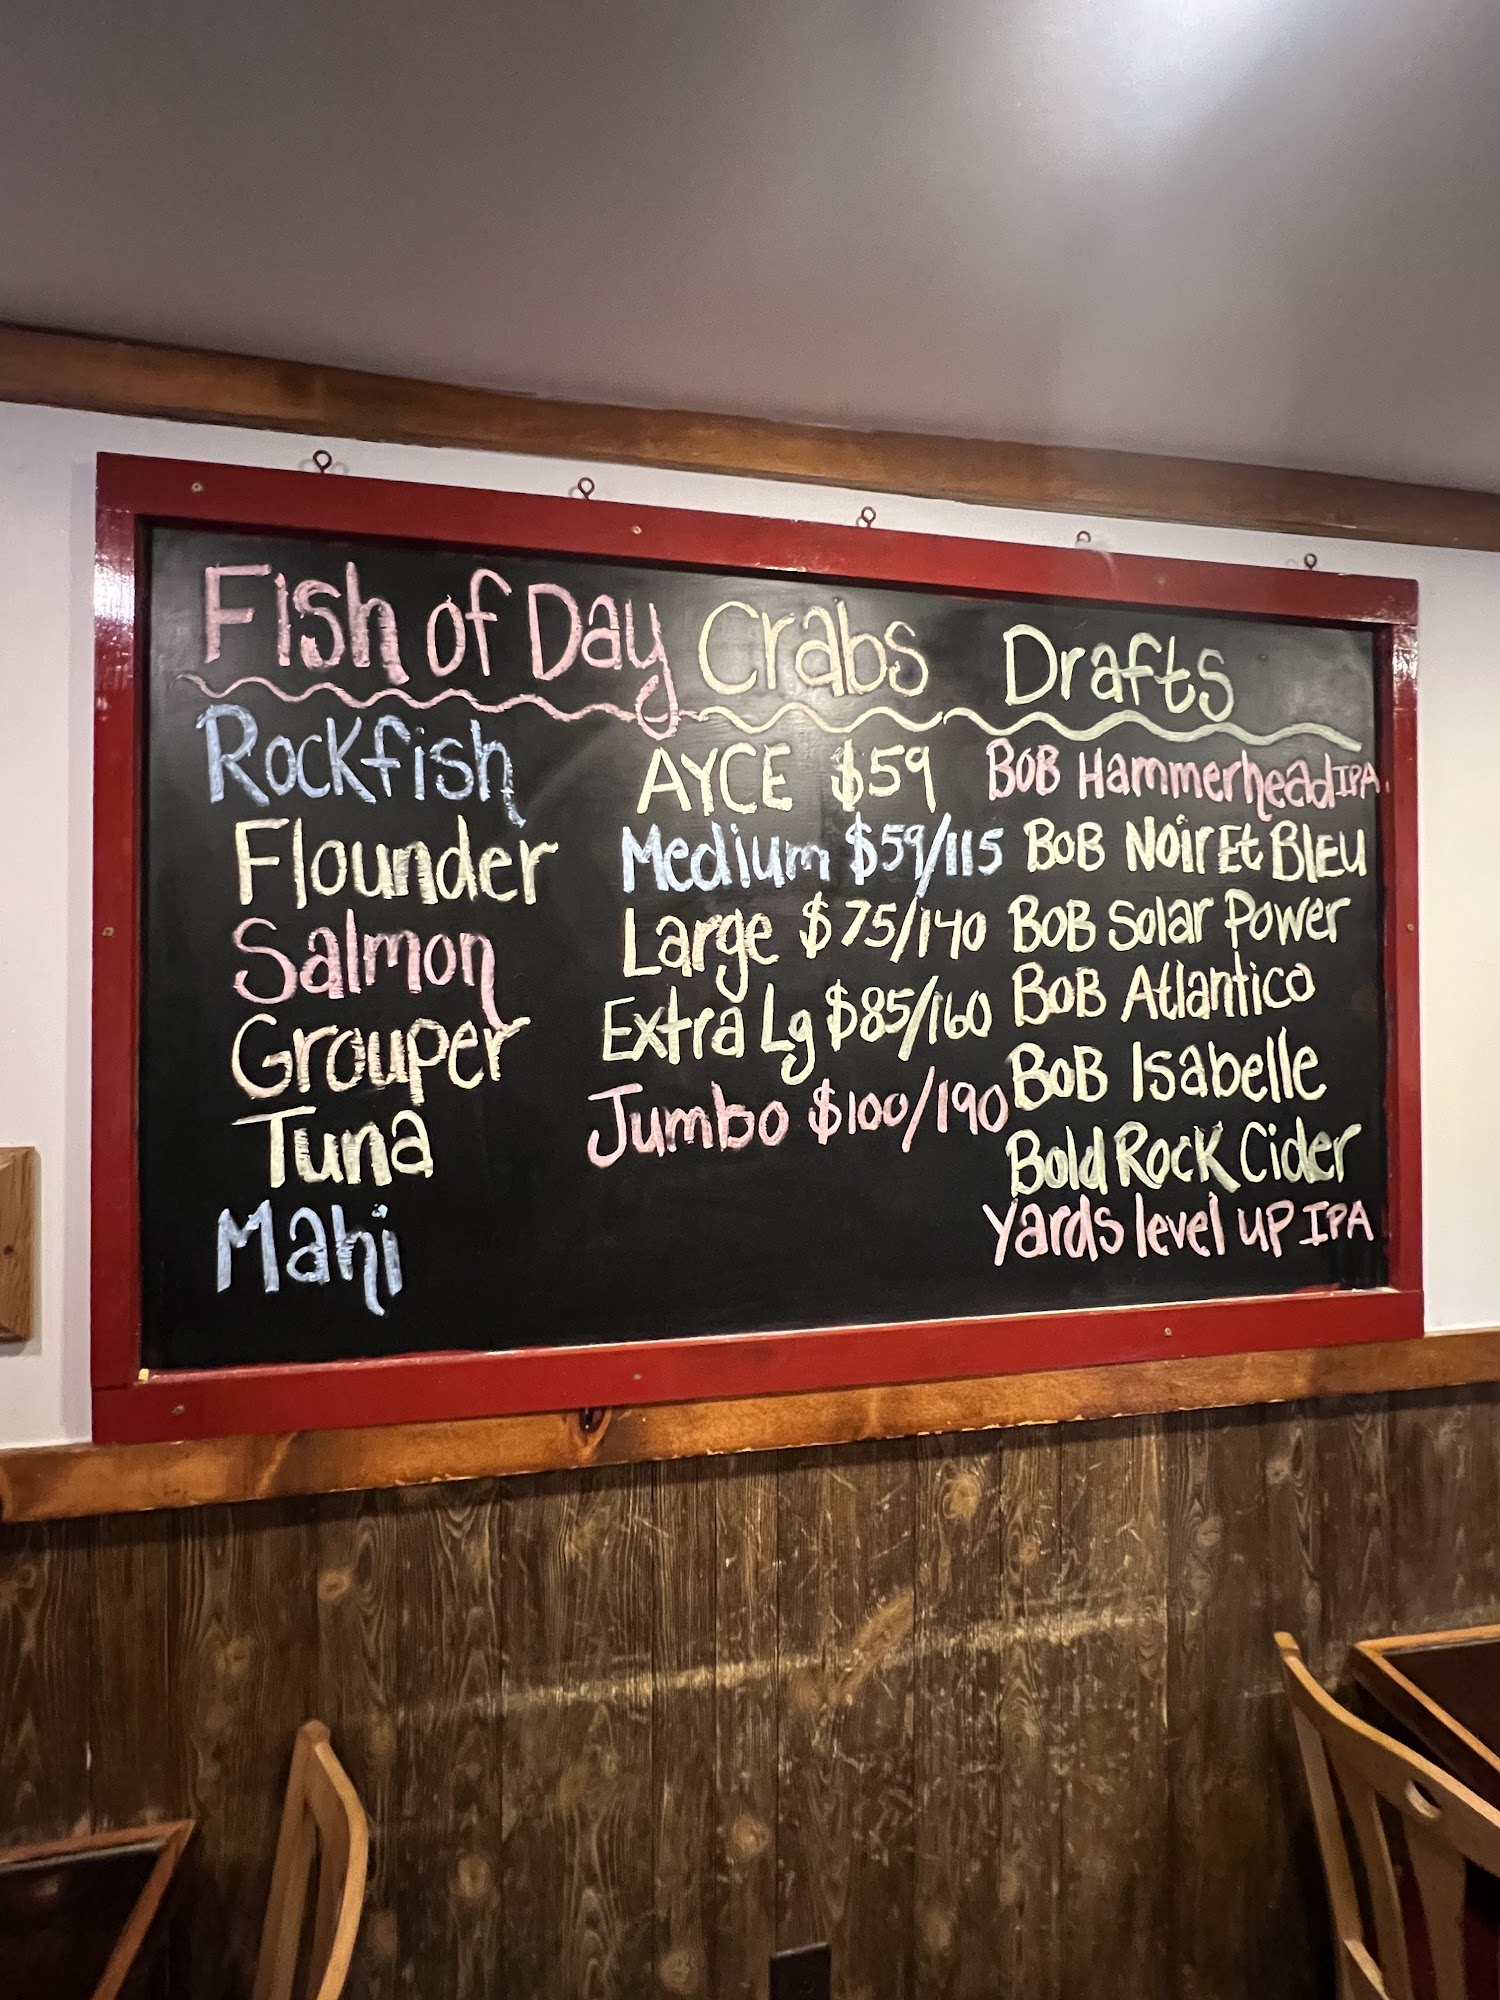 Fish of Day
Rockfish
Flounder
Salmon
Grouper
Tuna
Mahi
Crabs
AYCE $59
Medium $59/115
Large $75/140
Extra Lg $85/160
Jumbo $100/190
Drafts
BOB Hammerhead IPA.
BOB Noir Et BLEU
BOB Solar Power
BOB Atlantico
BOB Isabelle
Bold Rock Cider
Yards level up IPA